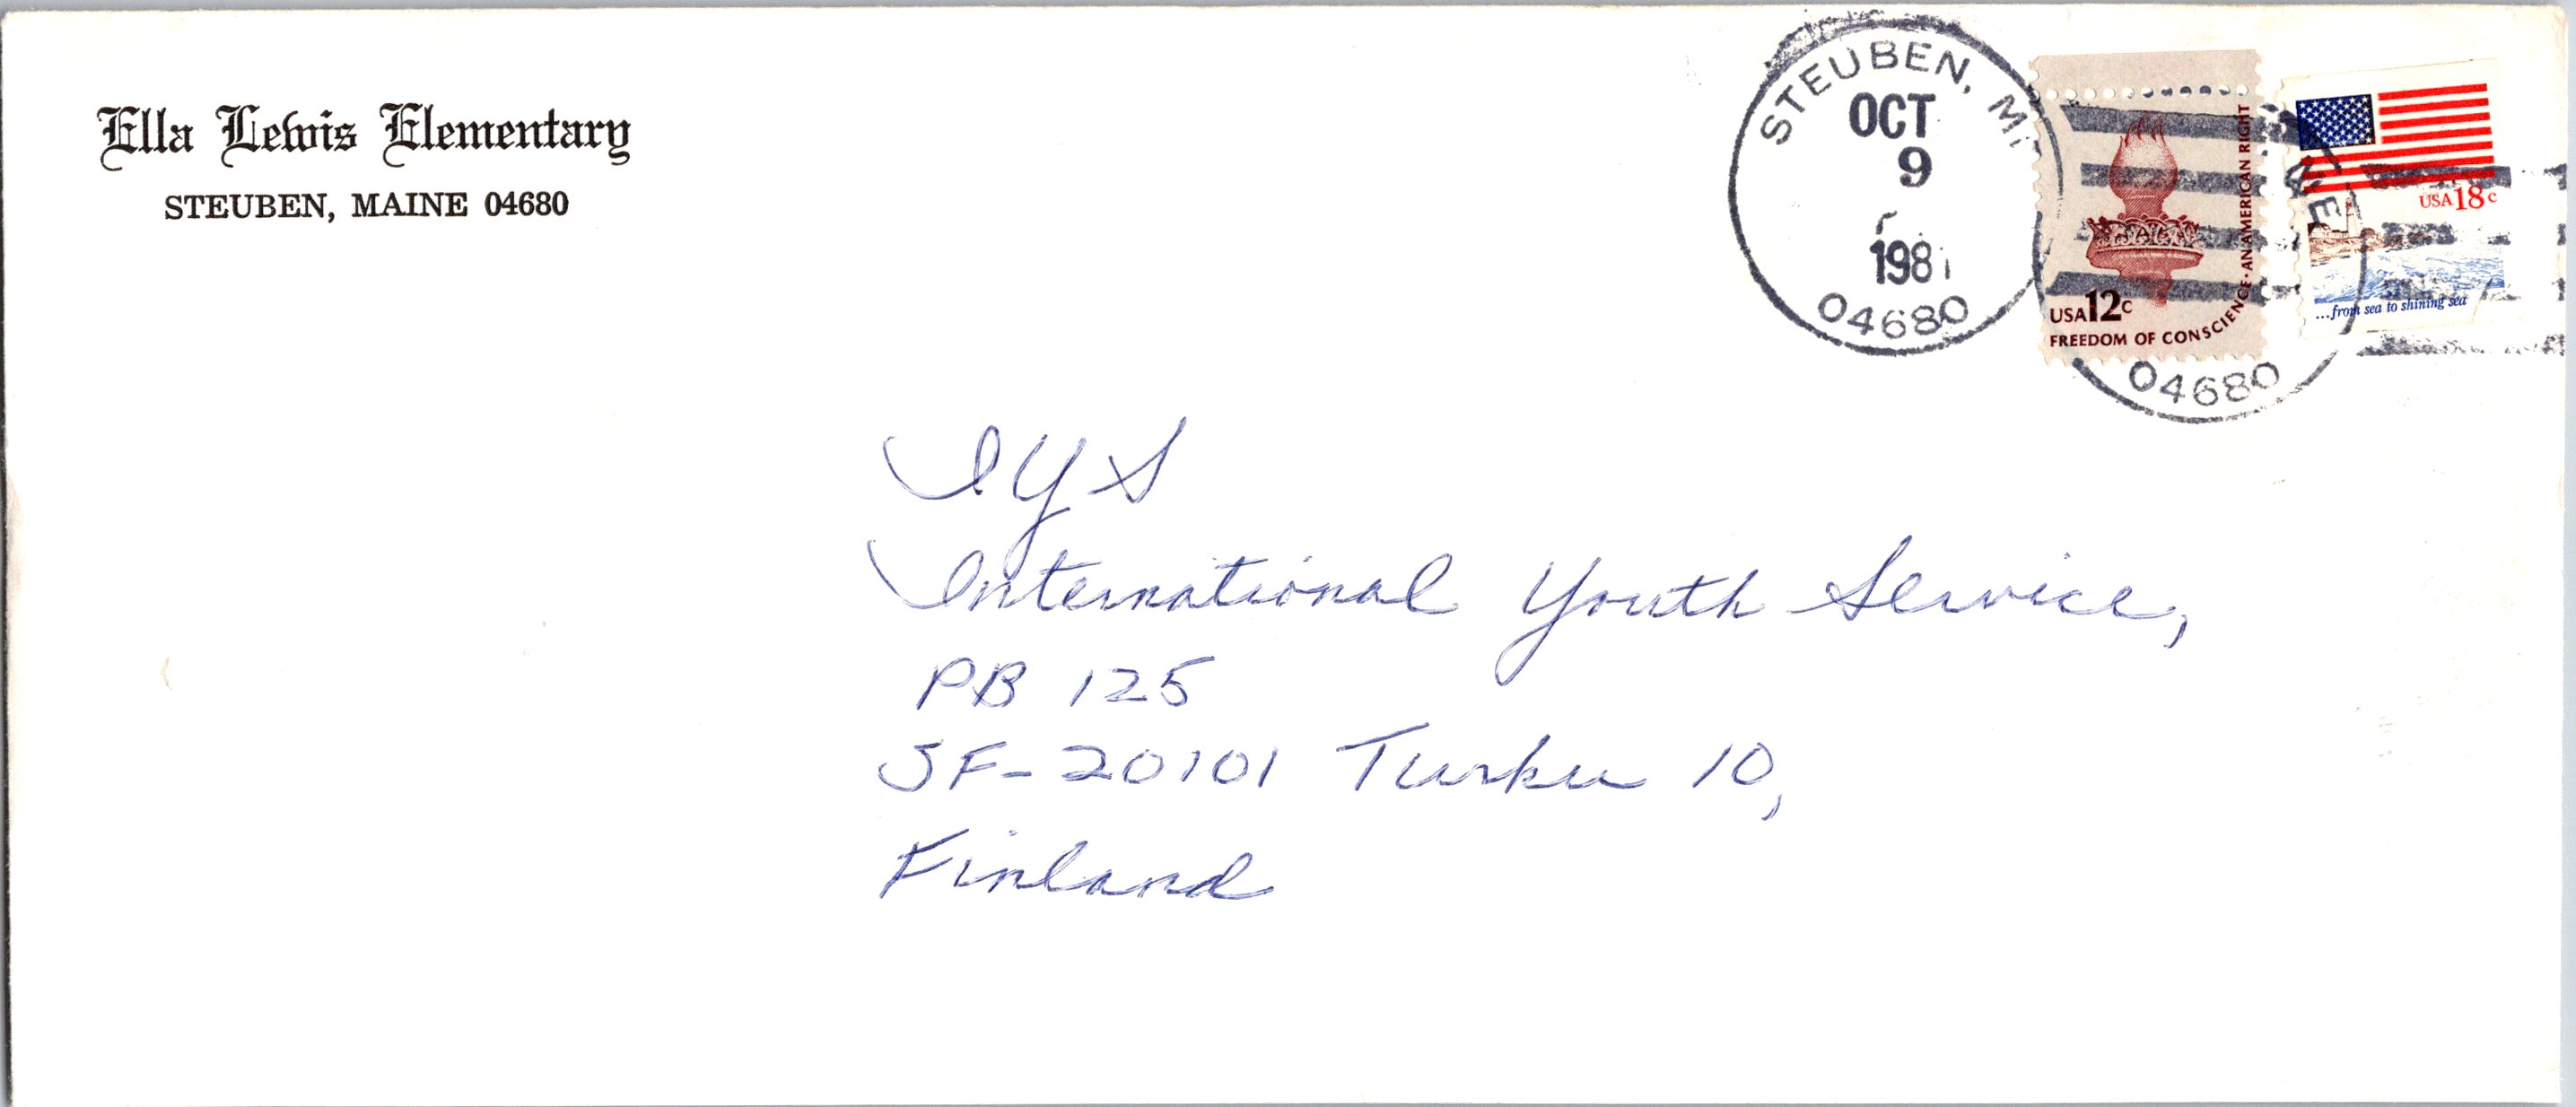 Ella Lewis Elementary
STEUBEN, MAINE 04680
STEUBEN, M
OCT
9
198
04680
USA 12c
FREEDOM OF CONSCIENCE · AN AMERICAN RIGHT
USA 18c
...from sea to shining sea
NE
04680
IYS
International Youth Service,
PB 125
SF-20101 Turku 10,
Finland